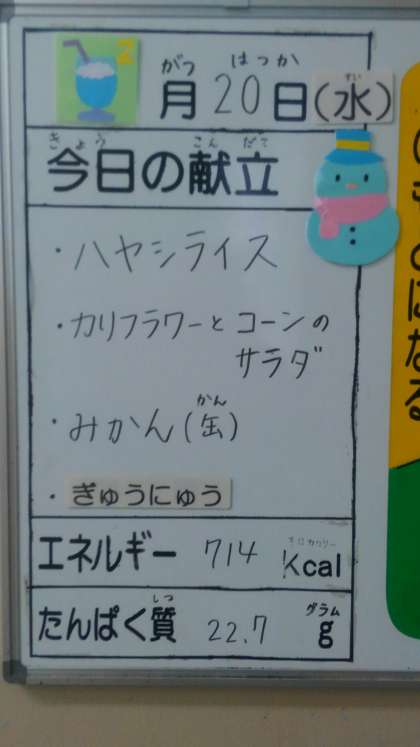 2
がつ はっか
月20日(水)
すい
きょう こんだて
今日の献立
・ハヤシライス
・カリフラワーと コーンの
サラダ
かん
・みかん(缶)
・ぎゅうにゅう
エネルギー 714 Kcal
しつ グラム
たんぱく質 22.7 g
になる